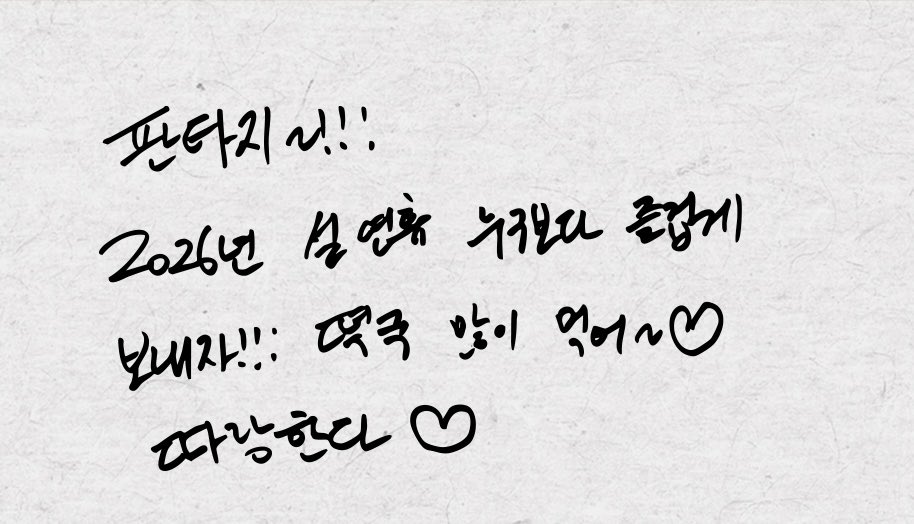 판타지~!!!
2026년 설 연휴 누구보다 즐겁게
보내자!!! 떡국 많이 먹어~♡
따랑한다♡